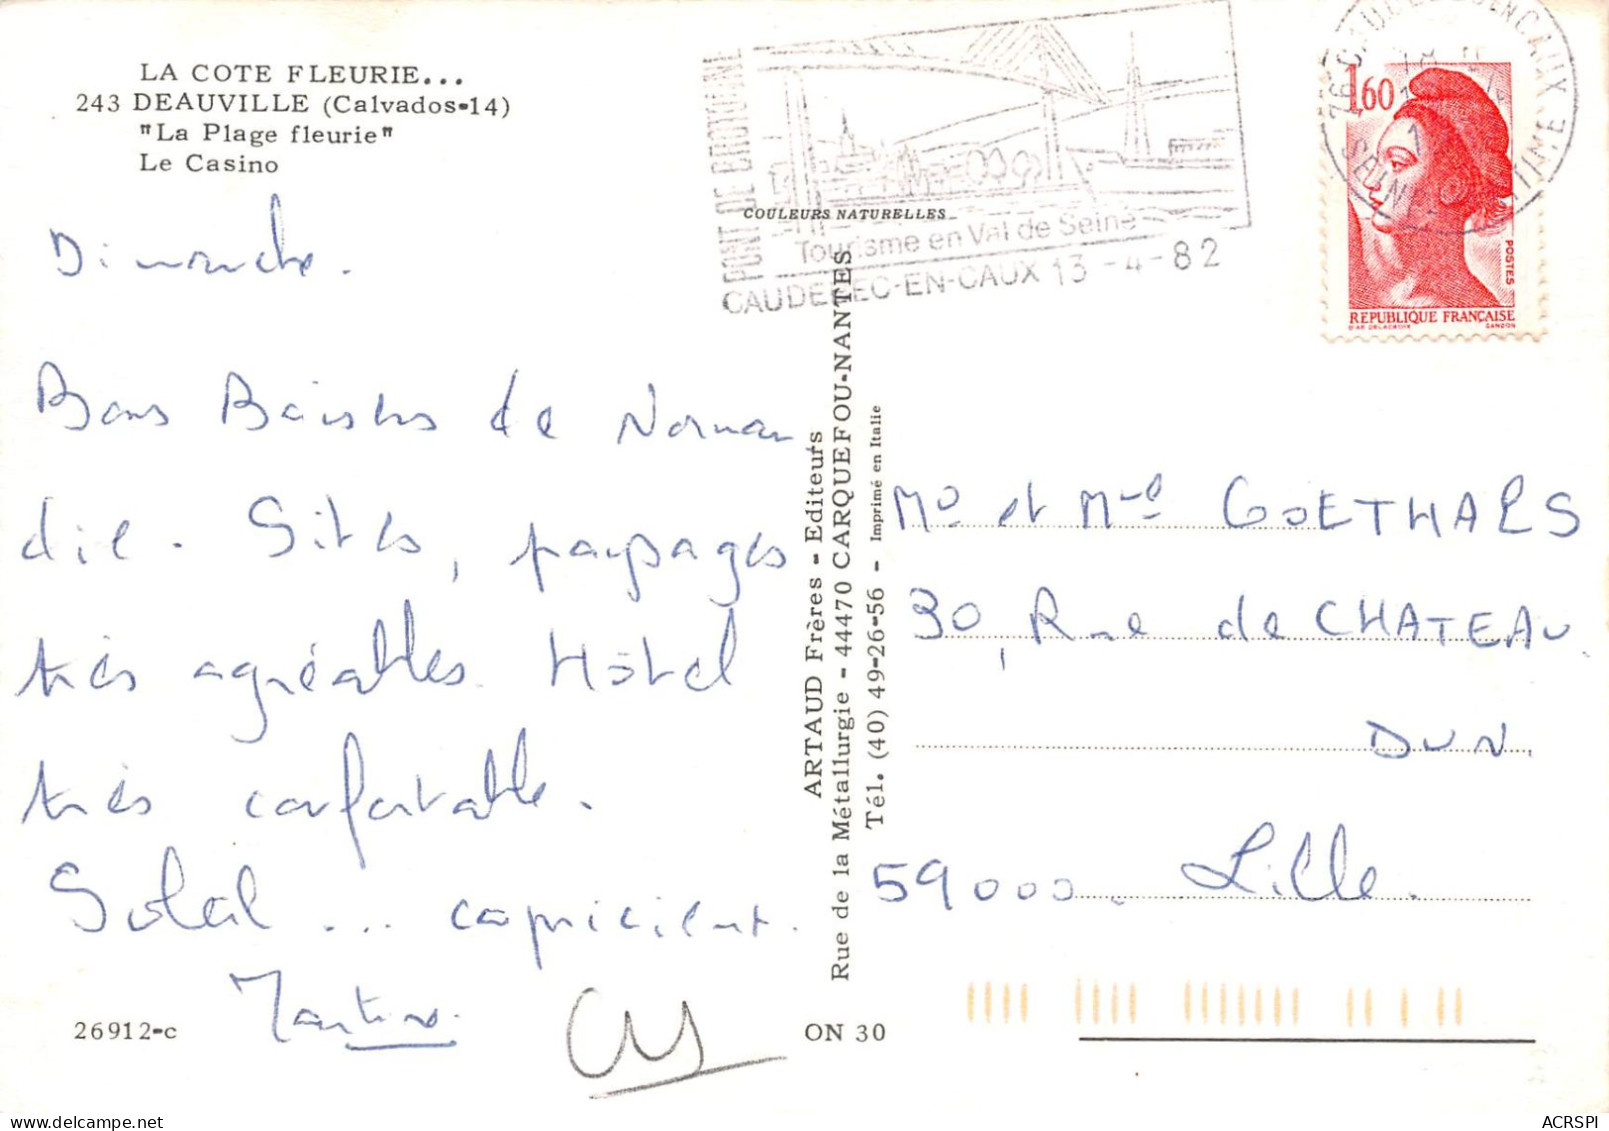 LA COTE FLEURIE...
243 DEAUVILLE (Calvados-14)
"La Plage fleurie"
Le Casino
Dimanche.
Bons Baisers de Norman
die. Sites, paysages
très agréables. Hôtel
très confortable.
Soleil ... capricieux.
26912-c
COULEURS NATURELLES
ARTAUD Frères - Editeurs
Rue de la Métallurgie - 44470 CARQUEFOU-NANTES
Tél. (40) 49-26-56 - Imprimé en Italie
ON 30
PONT DE BROTONNE
Tourisme en Val de Seine
CAUDEBEC-EN-CAUX 13-4-82
1,60
POSTES
REPUBLIQUE FRANÇAISE
D'AP. DELACROIX GANDON
Mr et Mme GOETHALS
30, Rue de CHATEAU
DUN.
59000. Lille.
ACRSPI